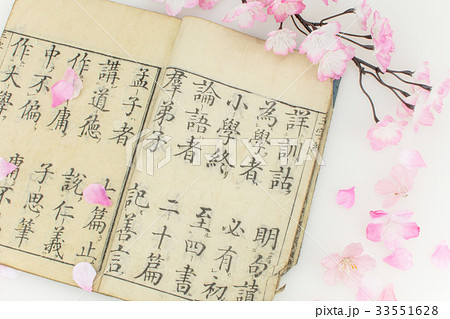 詳訓詁 明句讀
為學者 必有初
小學終 至四書
論語者 二十篇
羣弟子 記善言
孟子者 七篇止
講道德 說仁義
作中庸 子思筆
中不偏 庸不
作大學
PIXTA
pixta.jp - 33551628